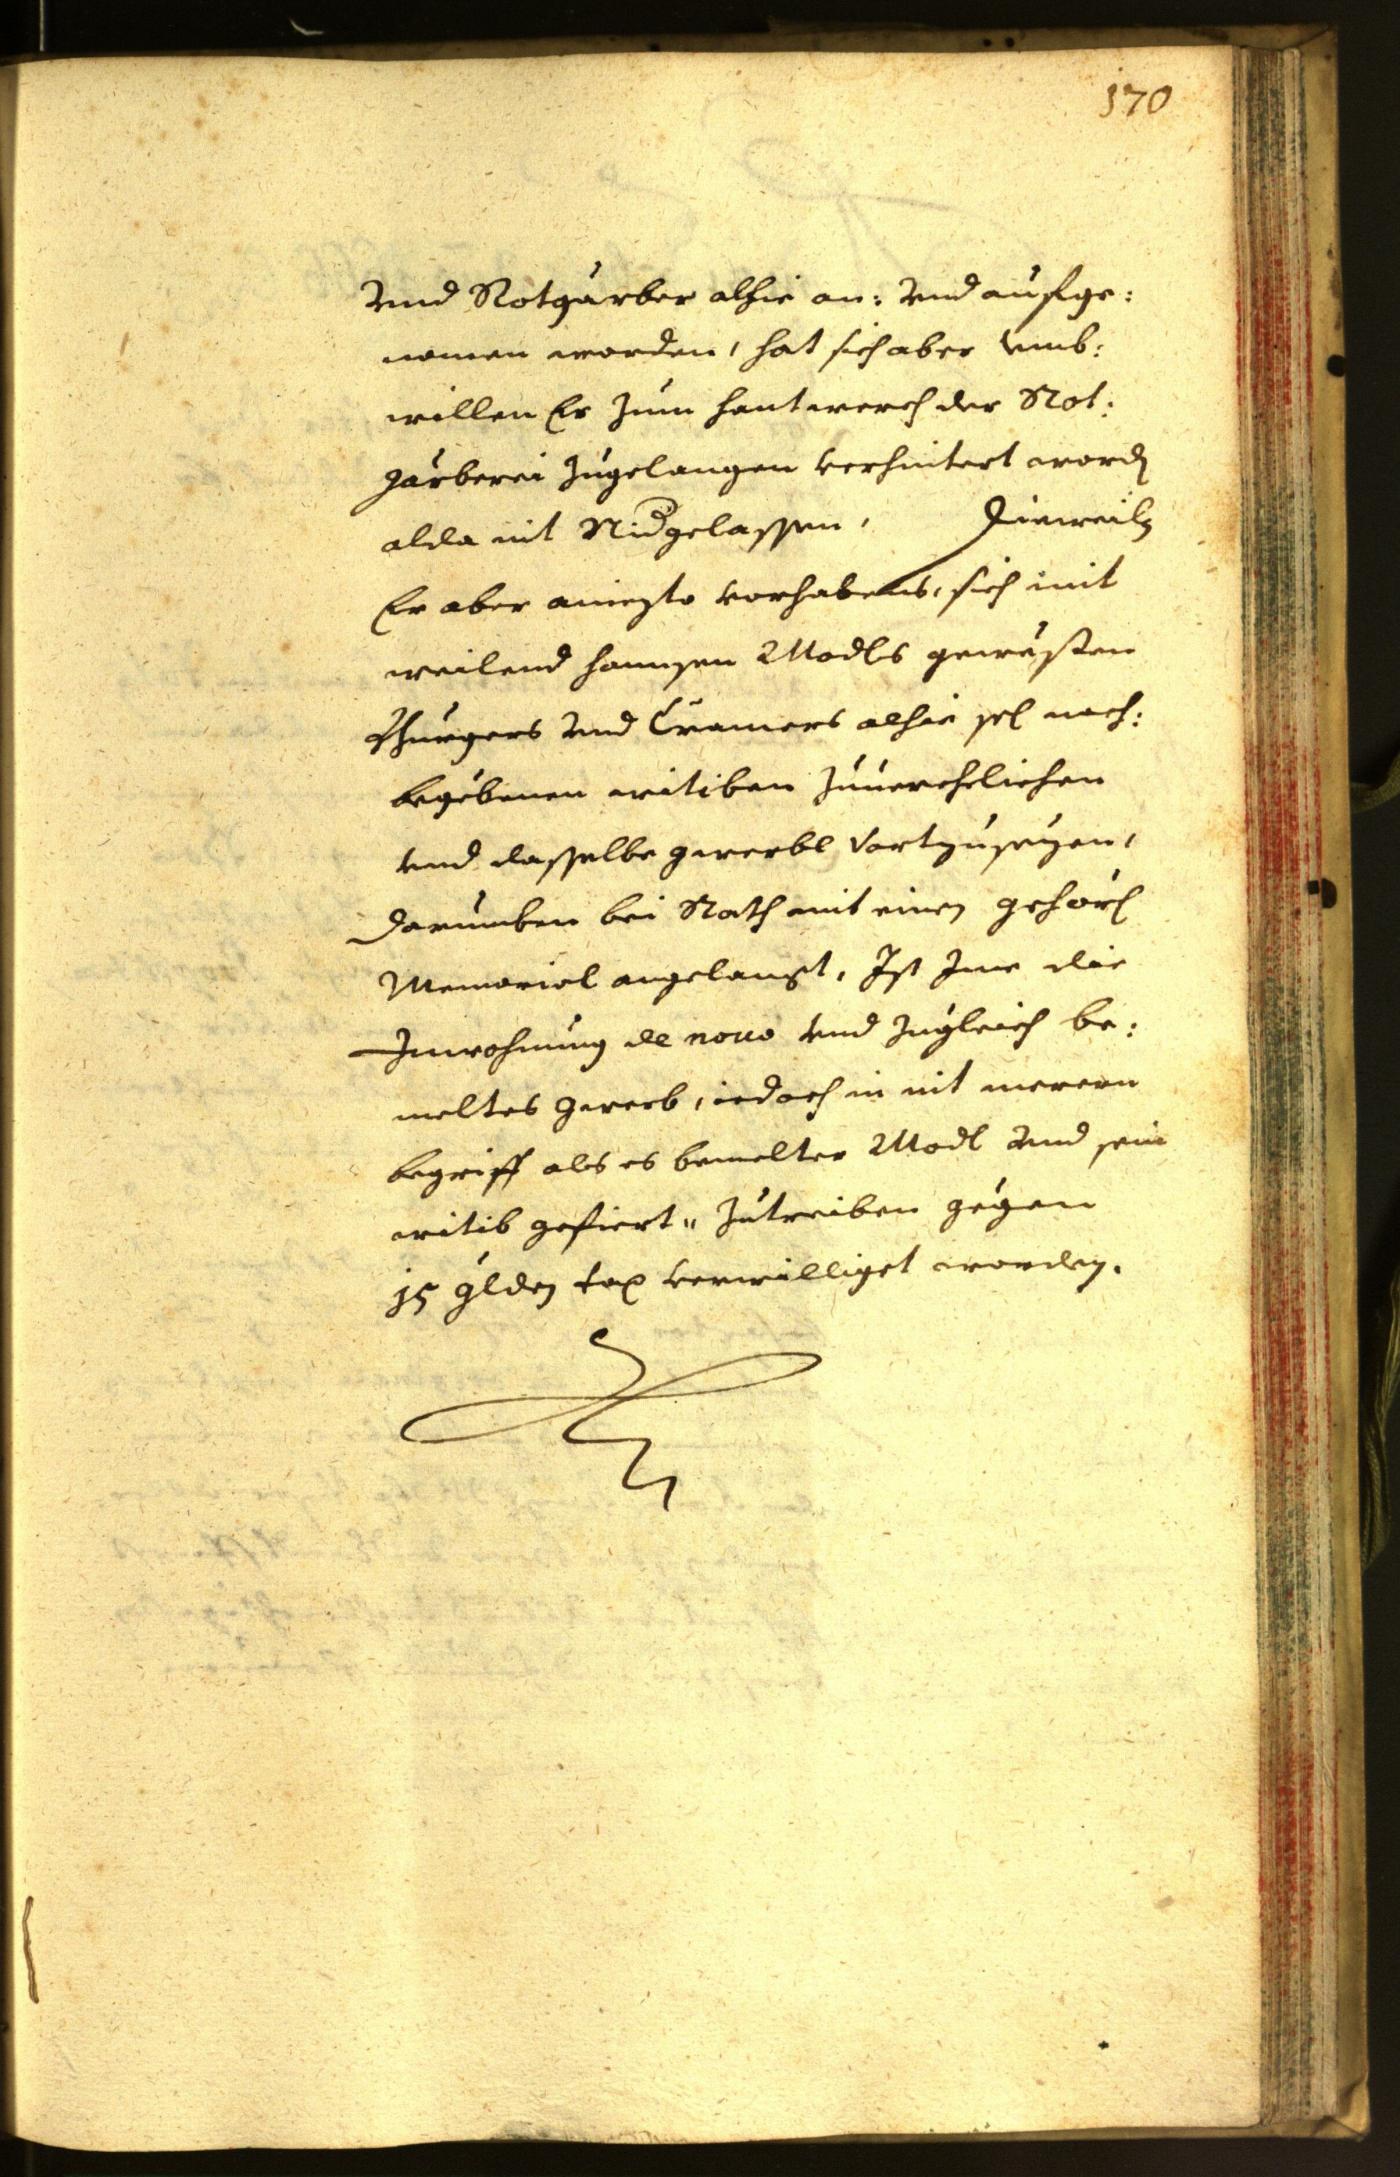 170
Vnd Rotgärber alhie an: Vnd aufge:
nomen worden, hat sich aber vmb:
willen Er zum hantwerch der Rot:
gärberei zugelangen verhintert word
alda nit Nidgelassen, Dieweiln
Er aber aniezto vorhabens, sich mit
weilend hannsen Modls gewesten
Burgers Vnd Cramers alhie sel nach:
begebenen witiben zuuerehelichen
vnd dasselbe gwerbl vortzusezen,
darumben bei Rath mit einen gehors
Memorial angelangt, Ist Ime die
Inwohnung de nouo vnd zugleich be:
meltes gewerb, iedoch in nit merern
begriff als es bemelter Modl Vnd sein
witib gefiert" zutreiben gegen
15 glden tax verwilliget worden.